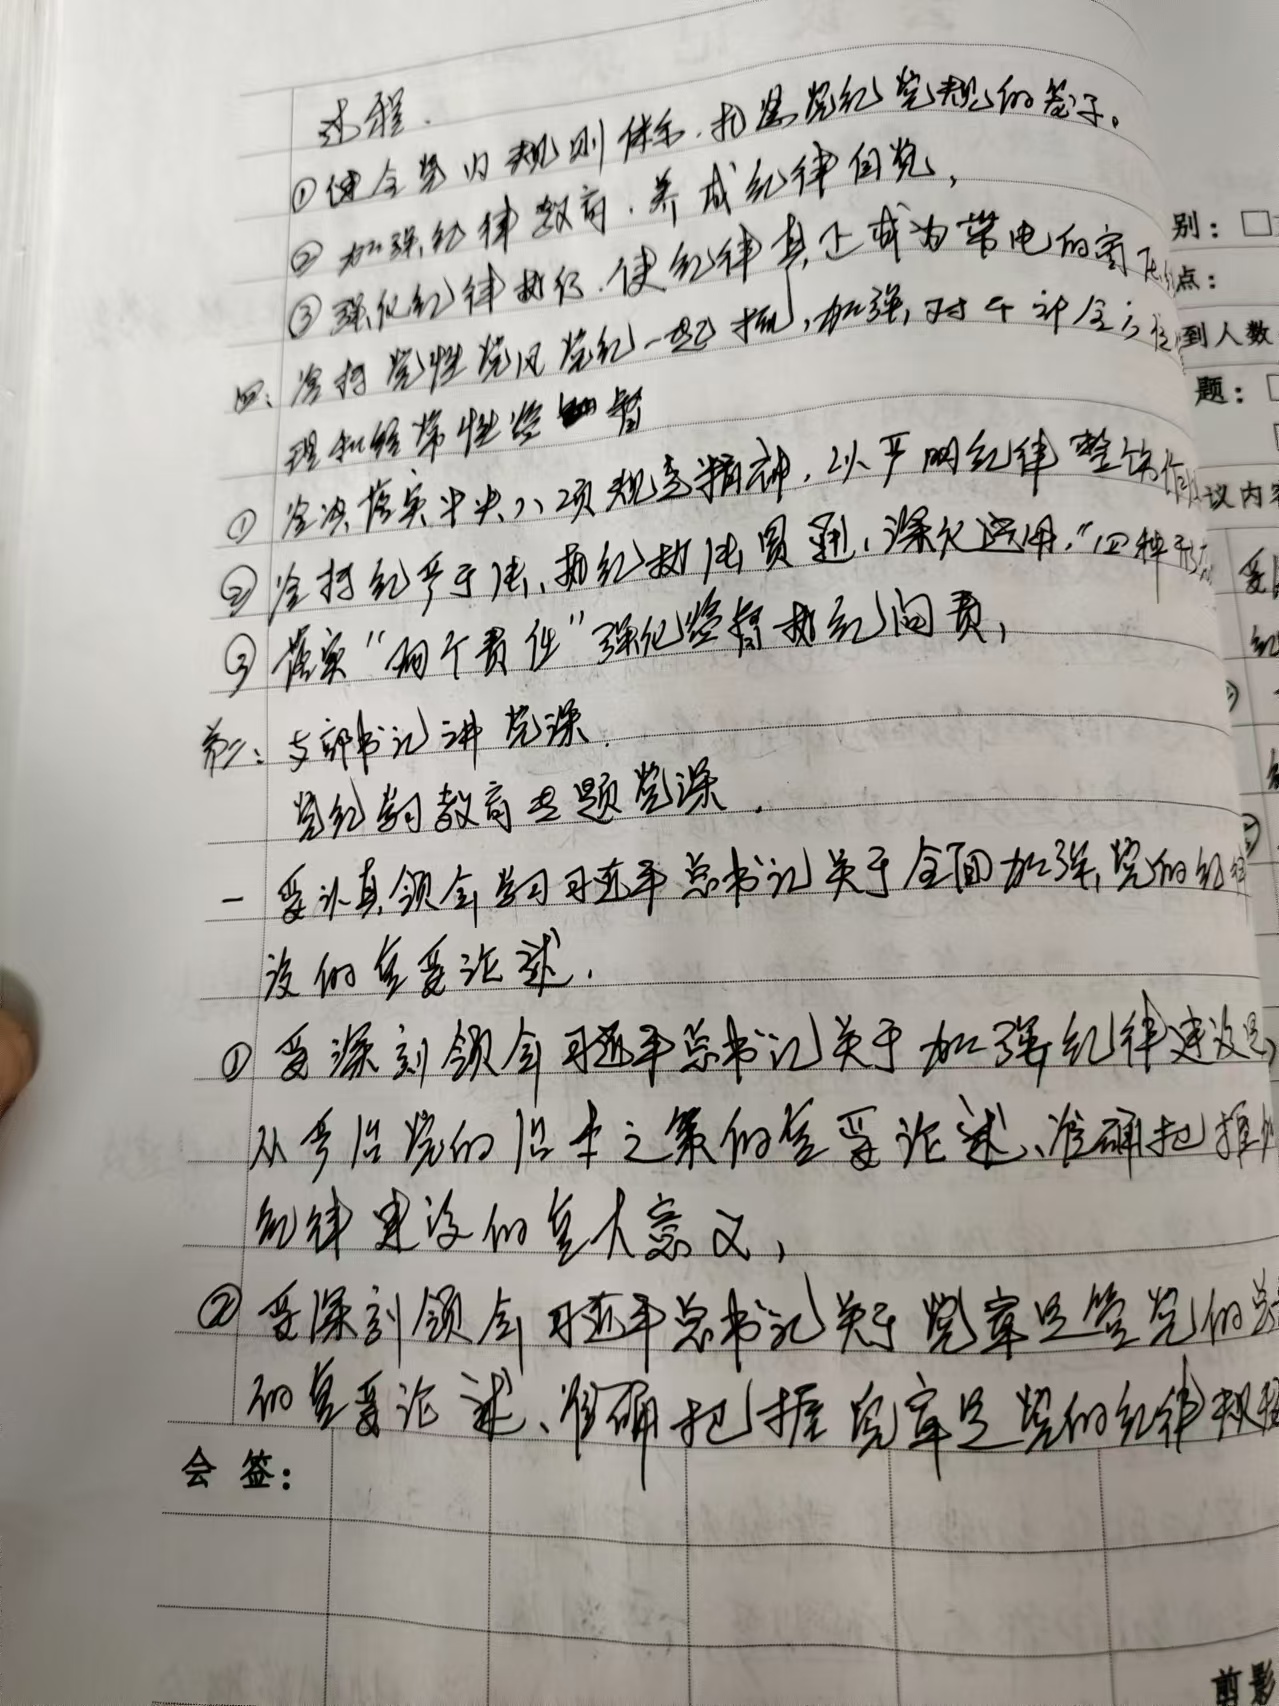 过程.
①健全党内规则体系.扎紧党纪党规的笼子。
②加强纪律教育.养成纪律自觉,
③强化纪律执行.使纪律真正成为带电的高
四、坚持党性党风党纪一起抓,加强对干部全方位
理和经常性监督
①坚决落实中央八项规定精神,以严明纪律整饬作
②坚持纪严于法、执纪执法贯通,深化运用"四种形
③落实"两个责任"强化监督执纪问责,
第二:支部书记讲党课.
党纪学习教育专题党课.
一 要认真领会学习习近平总书记关于全面加强党的纪
设的重要论述.
①要深刻领会习近平总书记关于加强纪律建设是
从严治党的治本之策的重要论述、准确把握
纪律建设的重大意义,
②要深刻领会习近平总书记关于党章是管党的总
的重要论述、准确把握党章是党的纪律规
会签:
别:□
点:
到人数
题:□
议内容
要
纪
剪影